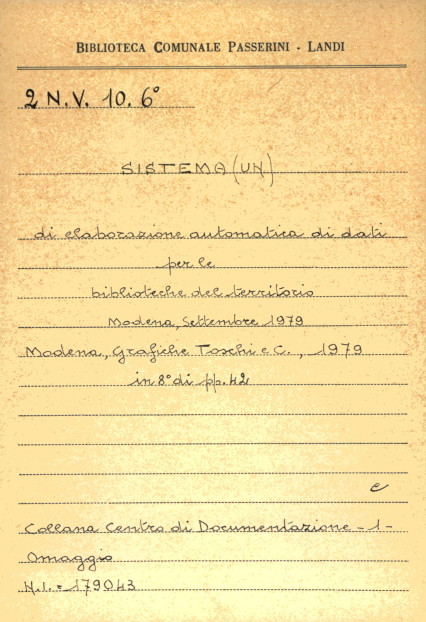 BIBLIOTECA COMUNALE PASSERINI - LANDI
2 N.V. 10. 6°
SISTEMA (UN)
di elaborazione automatica di dati
per le
biblioteche del territorio
Modena, Settembre 1979
Modena, Grafiche Toschi e C., 1979
in 8° di pp. 42
e
Collana Centro di Documentazione - 1 -
Omaggio
N.I. = 179043